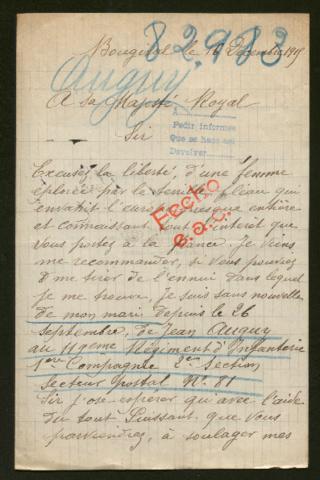 Bougival le 16 Décembre 1915
82.983
Auguy
A sa Majesté Royal
Sir
A
Pedir informes
Que se hace así
Devolver
Excusez la liberté, d'une femme
éplorée par le terrible fléau qui
envahit l'europe presque entière
et connaissant tout l'interêt que
vous portez à la france. je viens
me recommander, si vous pouviez
me tirer de l'ennui dans lequel
je me trouve, je suis sans nouvelles
de mon mari depuis le 26
septembre, de Jean Auguy
au Régiment d'Infanterie
1ere Compagnie 2eme Section
Secteur postal No. 81
Sir j'ose espérer qu'avec l'aide
du tout Puissant que vous
parviendrez, à soulager mes
Fecho
e.a.c.